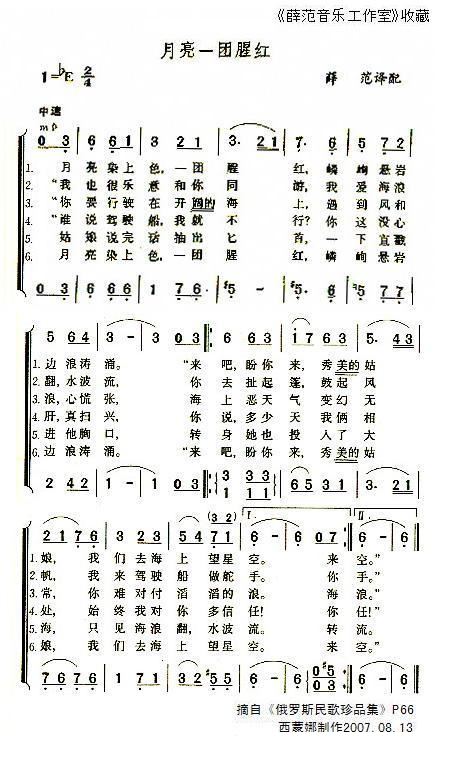 《薛范音乐工作室》收藏
月亮一团腥红
1=♭E 2/4
薛 范译配
中速
mp
0 3 6 6 1 3 2 1 3· 2 1 7· 6 5 7 2
1. 月 亮染上 色,一团 腥 红,嶙峋悬岩
2. “我 也很乐 意和你 同 游,我 爱海浪
3. “你 要行驶 在开阔的 海 上,遇到风和
4. “谁 说驾驶 船,我就 不 行?你 这没心
5. 姑 娘说完 话抽出 匕 首,一下直戳
6. 月 亮染上 色,一团 腥 红,嶙峋悬岩
0 3 6 6 6 1 7 6 6· #5· 6 5 7 6
5 6 4 3 3 0 3 6 6 3 1 7 6 3 5· 4 3
1. 边 浪涛 涌。 “来 吧,盼你 来,秀美的姑
2. 翻,水波 流, 你 去 扯起 篷,鼓起 风
3. 浪,心慌 张, 海 上 恶天 气 变幻 无
4. 肝,真扫 兴, 你 说,多少 天 我俩 相
5. 进 他胸 口, 转 身 她也 投 入了 大
6. 边 浪涛 涌。 “来 吧,盼你 来,秀美的姑
2 4 2 1 1 0 3
3· 2 1
2 1 7 6 3 2 3 5 4 7 1 6 6 0 7 6 0
(3 2)
1. 娘, 我 们去 海上 望星 空。 来 空。”
2. 帆, 我 来驾 驶船 做舵 手。 你 手。”
3. 常,你 难对 付滔 滔的 浪。 海 浪。”
4. 处, 始 终我 对你 多信 任! 你 任!”
5. 海,只 见海 浪翻,水波 流。 转 流。
6. 娘, 我 们去 海上 望星 空。“来 空。”
摘自《俄罗斯民歌珍品集》P66
西蒙娜制作2007.08.13